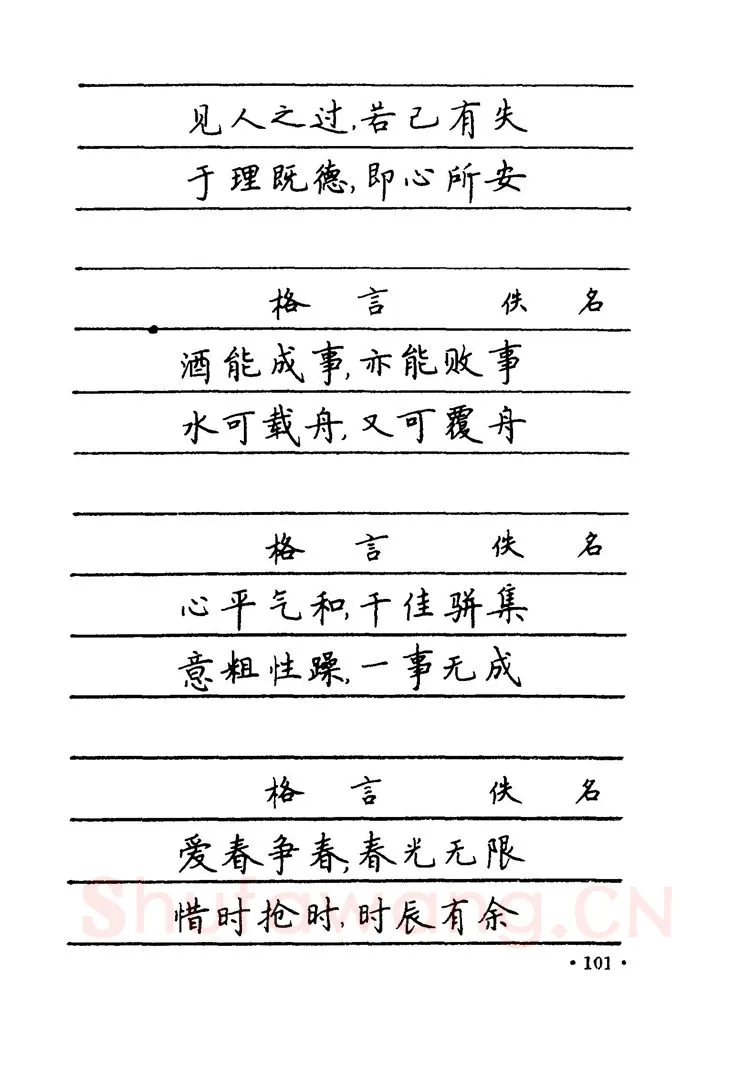 见人之过,若己有失
于理既德,即心所安
格 言 佚 名
酒能成事,亦能败事
水可载舟,又可覆舟
格 言 佚 名
心平气和,千佳骈集
意粗性躁,一事无成
格 言 佚 名
爱春争春,春光无限
惜时抢时,时辰有余
Shufawang.CN
·101·